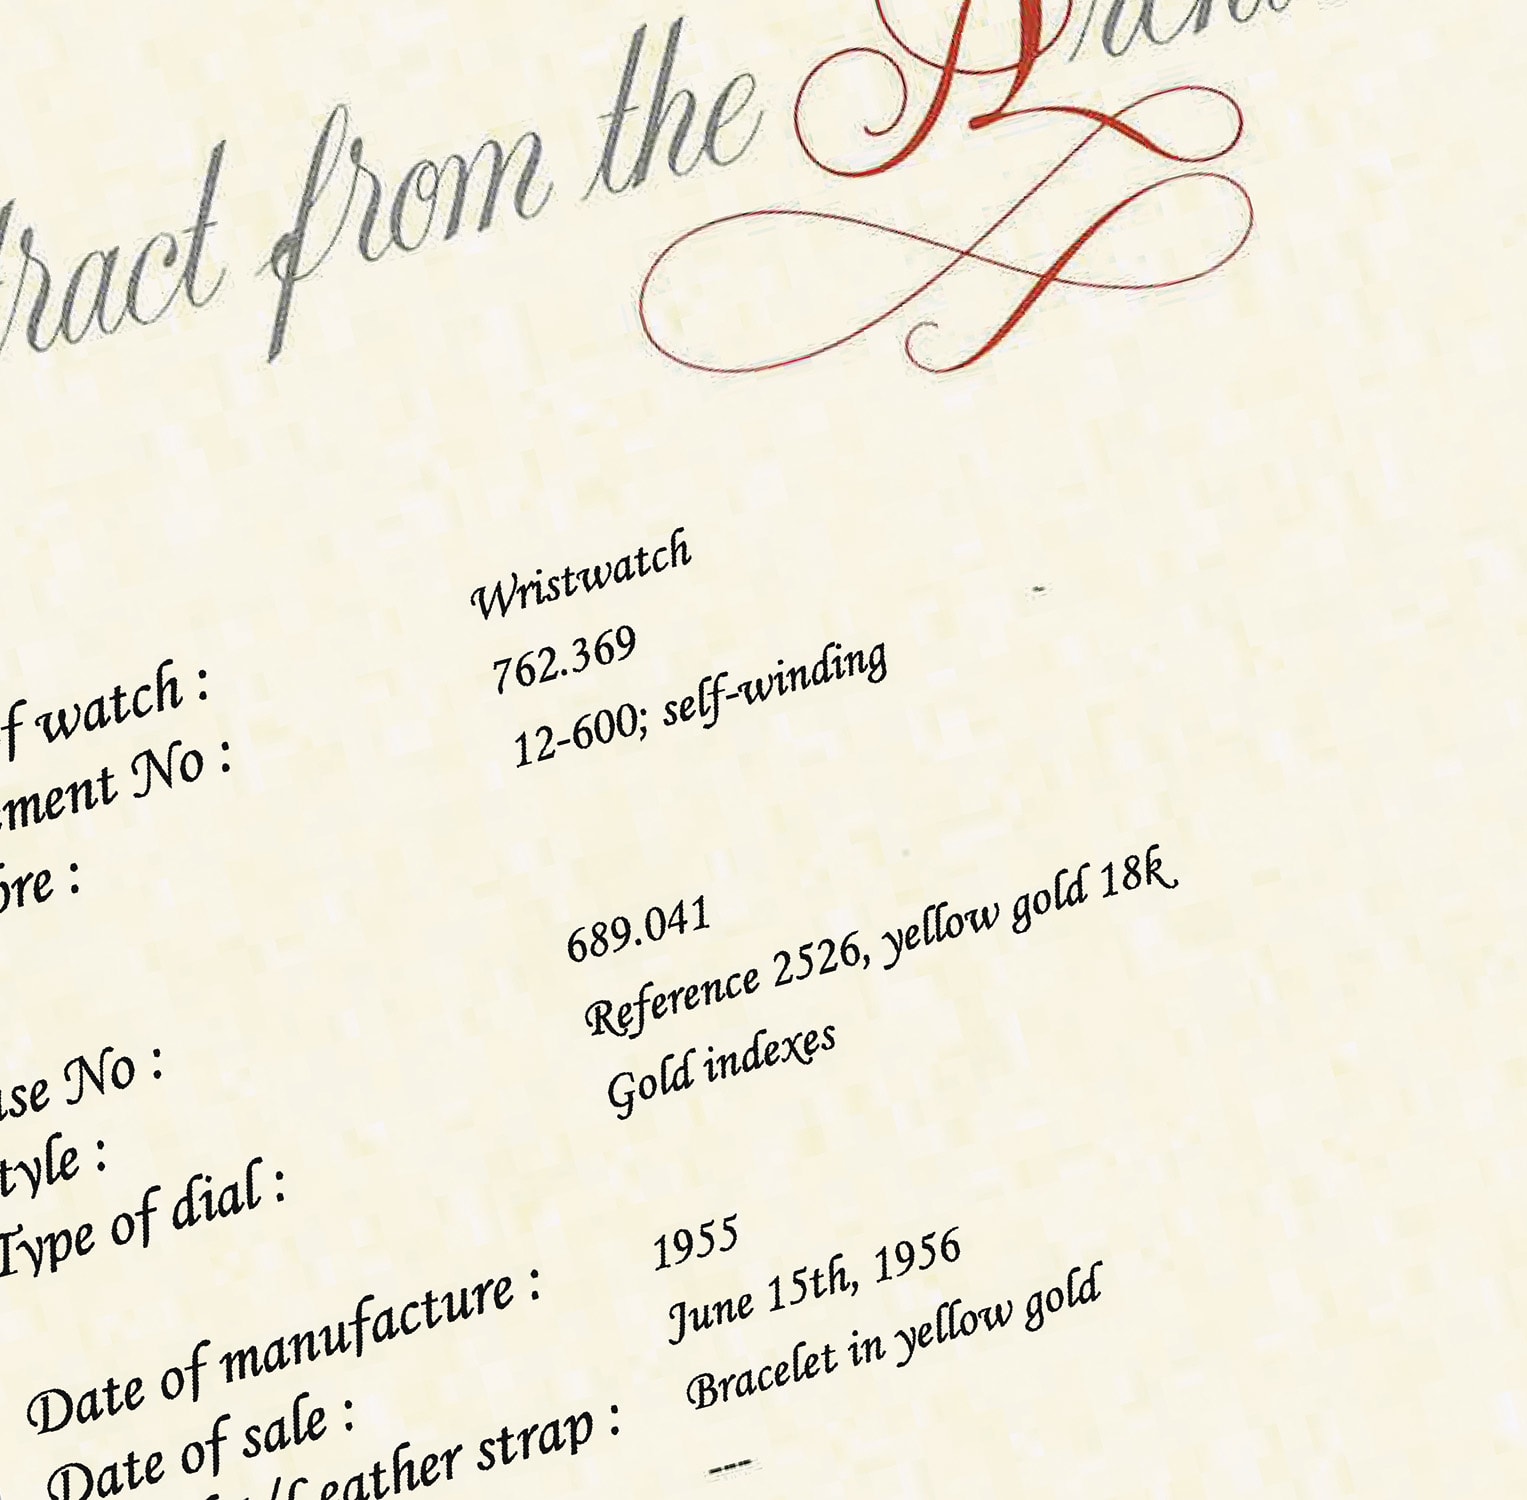 from the
of watch : Wristwatch
No : 762.369
12-600; self-winding
No : 689.041
Reference 2526, yellow gold 18k
Type of dial : Gold indexes
Date of manufacture : 1955
Date of sale : June 15th, 1956
/Leather strap : Bracelet in yellow gold
---